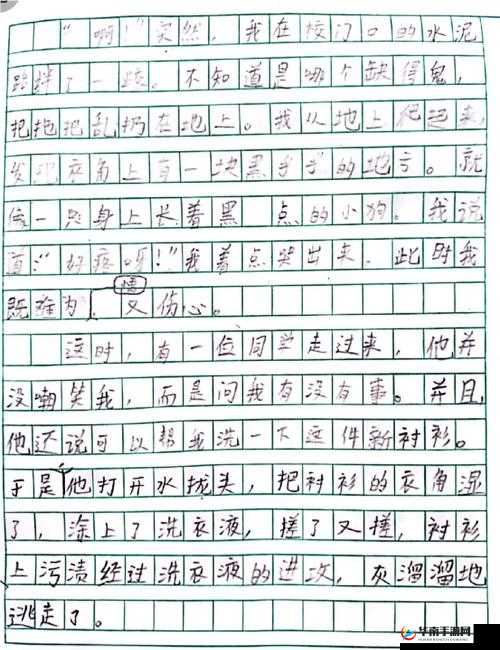 “啊!”突然，我在校门口的水泥
路拌了一跤。不知道是哪个缺得鬼，
把拖把乱扔在地上。我从地上爬起来，
发现衣角上有一块黑乎乎的地方。就
像一只身上长着黑 点的小狗。我说
道：“好疼呀!”我差点哭出来。此时我
既难为情，又伤心。
这时，有一位同学走过来，他并
没嘲笑我，而是问我有没有事。并且，
他还说可以帮我洗一下这件新衬衫。
于是他打开水拢头，把衬衫的衣角湿
了，涂上了洗衣液，搓了又搓，衬衫
上污渍经过洗衣液的进攻，灰溜溜地
逃走了。
华南手游网